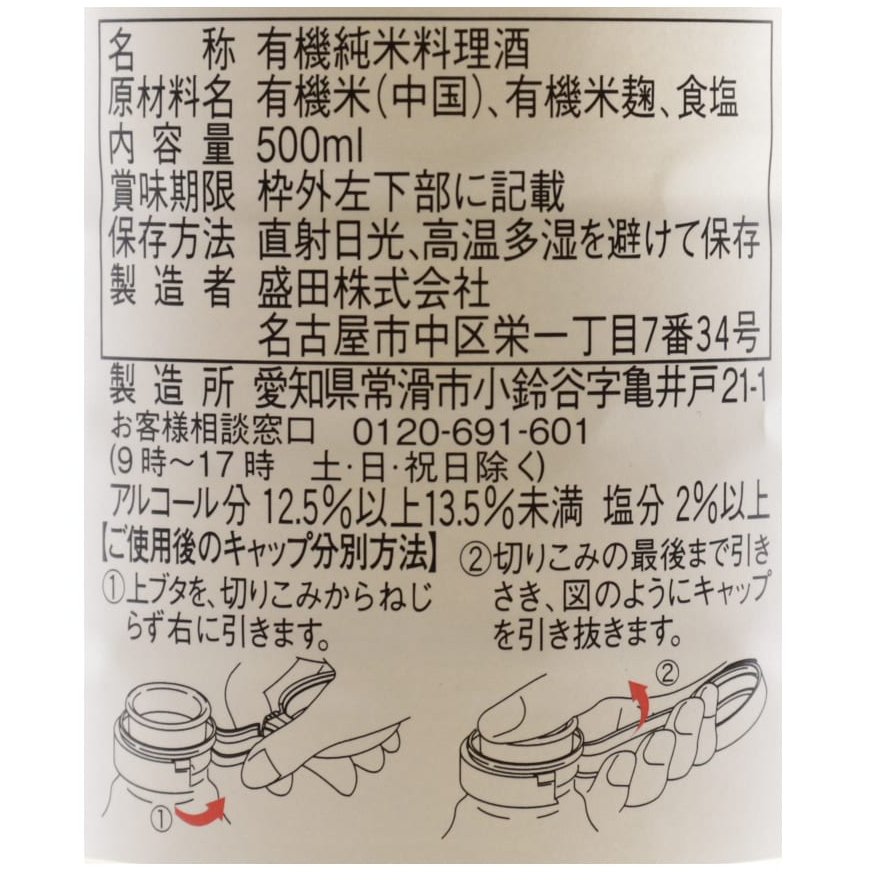 名称 有機純米料理酒
原材料名 有機米(中国)、有機米麹、食塩
内容量 500ml
賞味期限 枠外左下部に記載
保存方法 直射日光、高温多湿を避けて保存
製造者 盛田株式会社
名古屋市中区栄一丁目7番34号
製造所 愛知県常滑市小鈴谷字亀井戸21-1
お客様相談窓口 0120-691-601
(9時~17時 土・日・祝日除く)
アルコール分 12.5%以上13.5%未満 塩分 2%以上
【ご使用後のキャップ分別方法】
①上ブタを、切りこみからねじ
らず右に引きます。
②切りこみの最後まで引き
さき、図のようにキャップ
を引き抜きます。
①
②